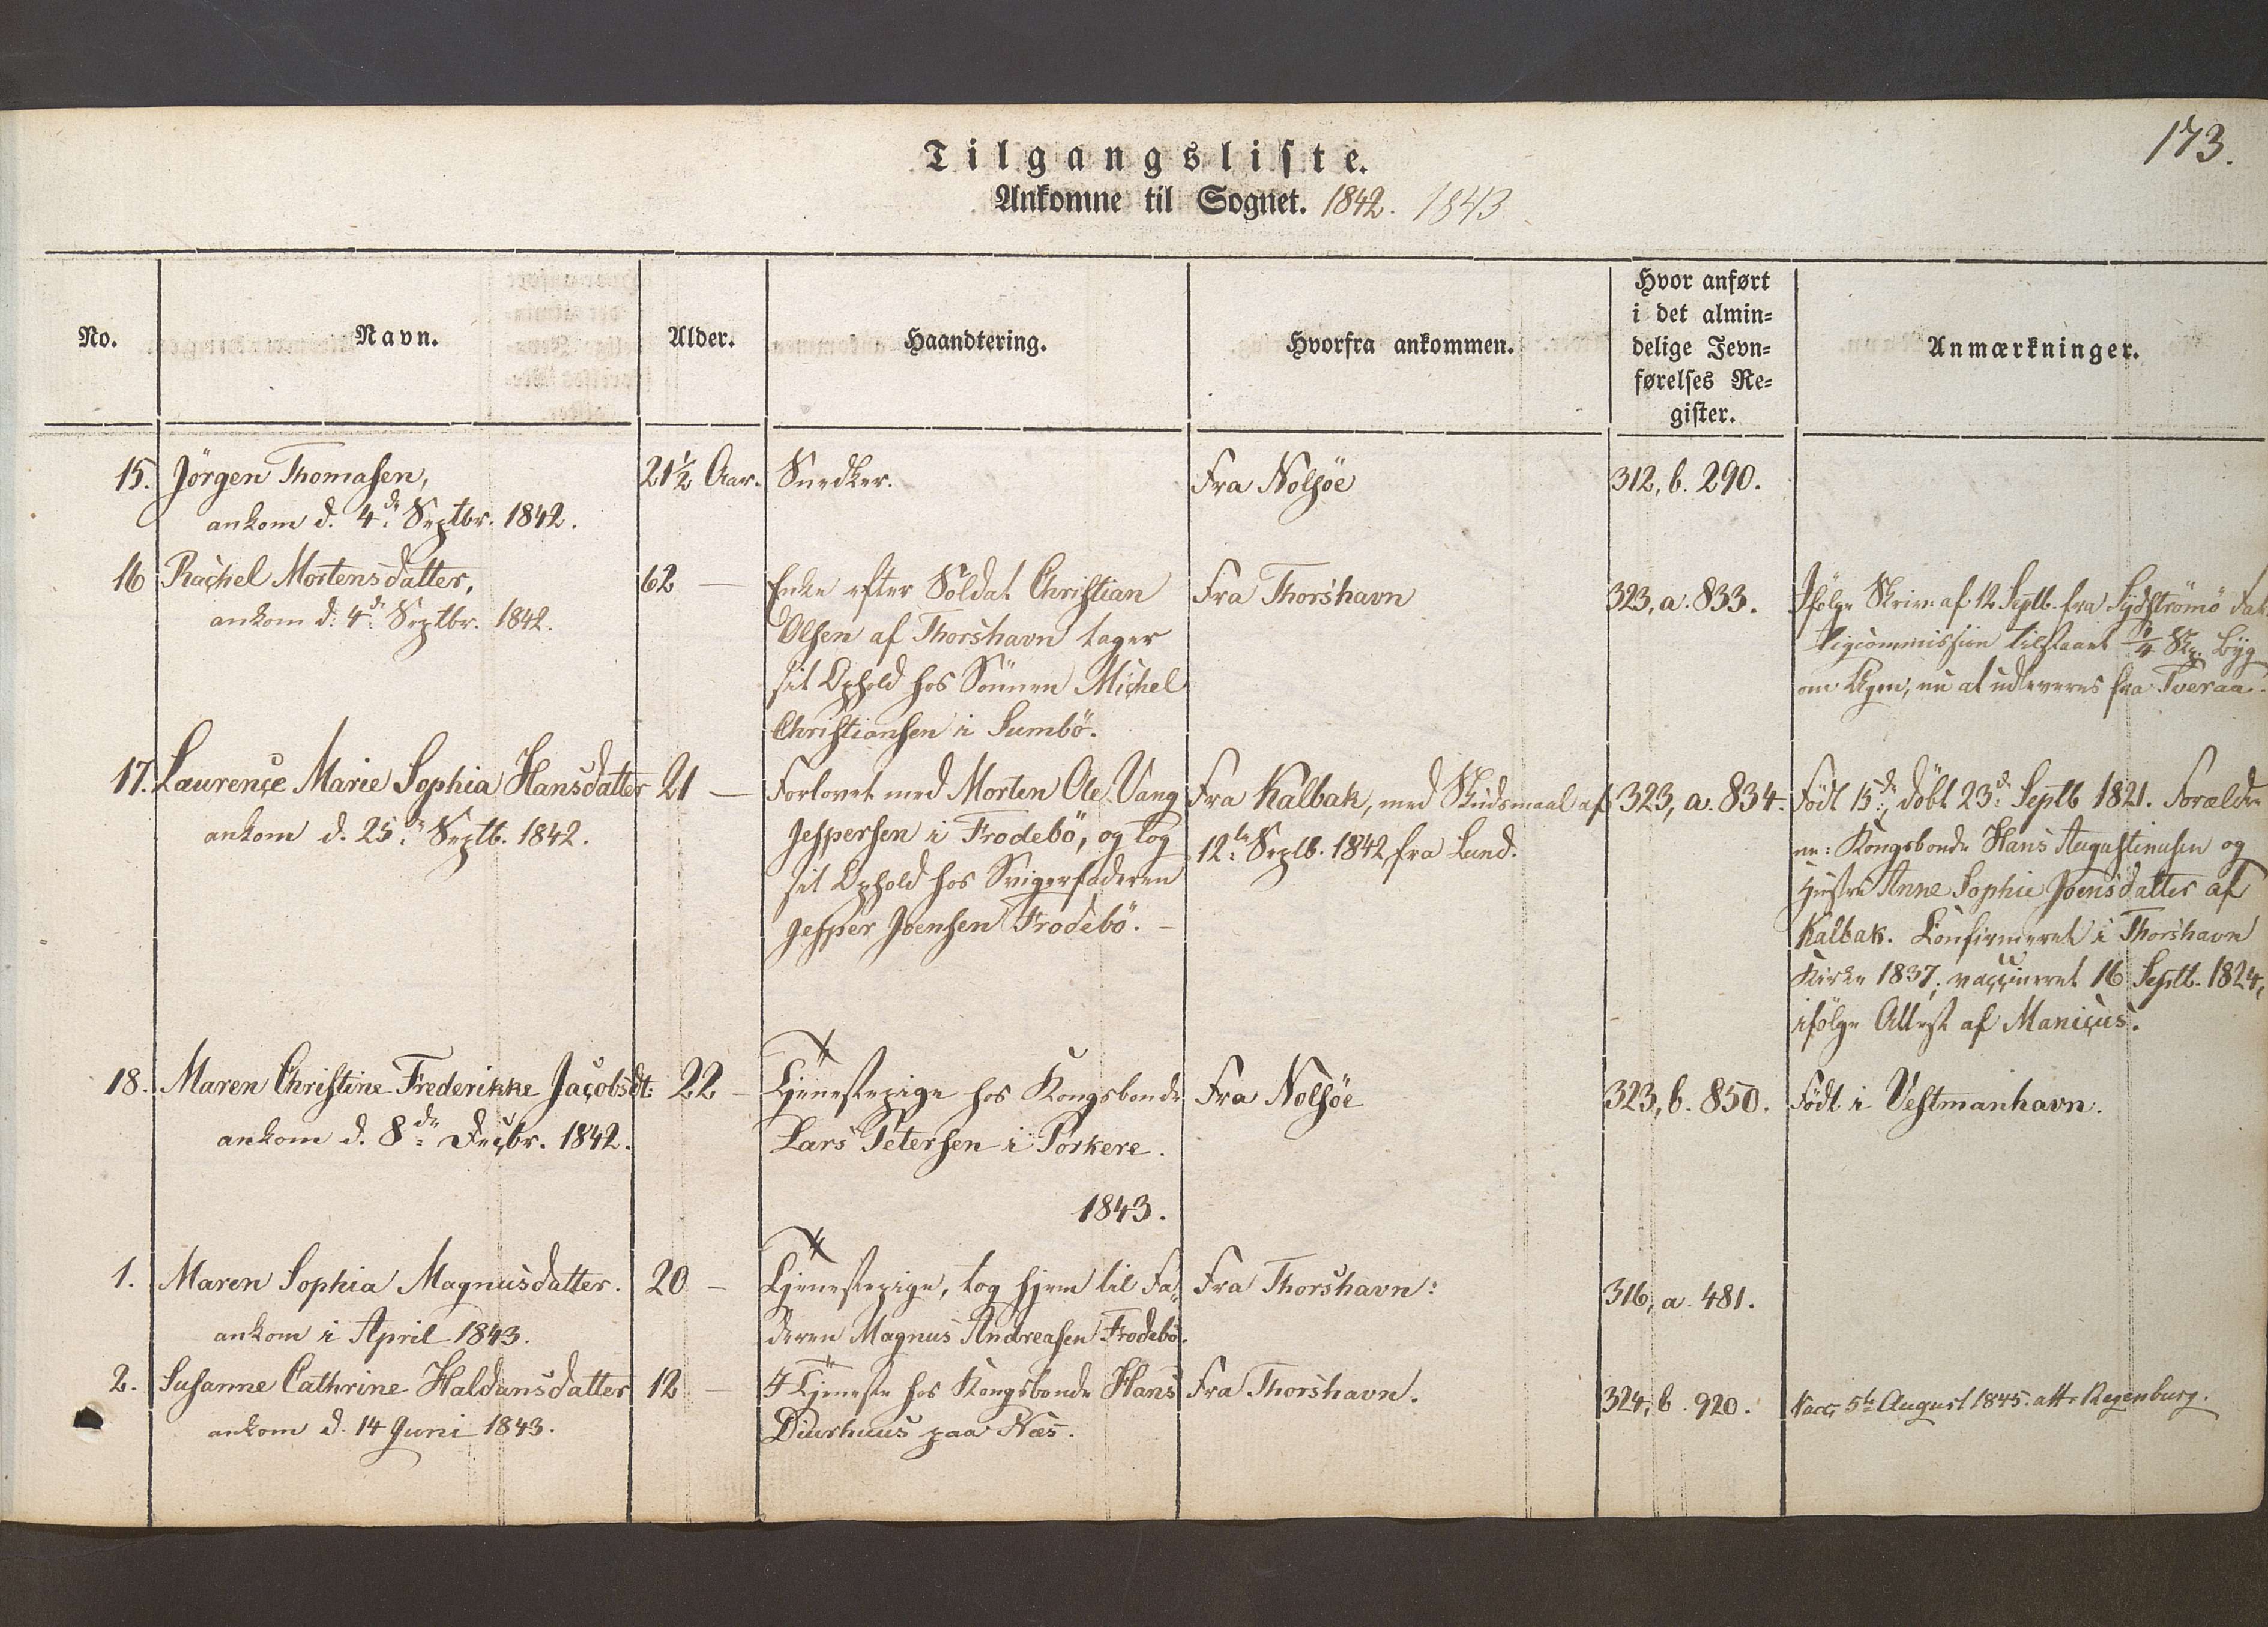 173.
Tilgangsliste.
Ankomne til Sognet. 1842. 1843
No.
Navn.
Alder.
Haandtering.
Hvorfra ankommen.
Hvor anført
i det almin=
delige Jevn=
førelses Re=
gister.
Anmærkninger.
15. Jörgen Thomasen, 21½ Aar. Snedker. Fra Nolsöe 312, b. 290.
ankom d. 4de Septbr. 1842.
16 Rachel Mortensdatter, 62 — Enke efter Soldat Christian Fra Thorshavn 323, a. 833. Ifölge Skriv. af 12 Septb. fra Sydströmö Fat
ankom d. 4de Septbr. 1842. Olsen af Thorshavn tager tigcommission tilstaaet ¼ Skp. Byg
sit Ophold hos Sönnen Michel om Ugen, nu at udleveres fra Tveraa.
Christiansen i Sumbö.
17. Laurence Marie Sophia Hansdatter 21 — Forlovet med Morten Ole Vang Fra Kalbak, med Skudsmaal af 323, a. 834. Födt 15de, döbt 23de Septb 1821. Forældre
ankom d. 25de Septb. 1842. Jespersen i Frodebö, og tog 12te Septb. 1842 fra Lund. ne: Kongsbonde Hans Augustinusen og
sit Ophold hos Svigerfaderen Hustru Anne Sophie Joensdatter af
Jesper Joensen Frodebö. — Kalbak. Confirmeret i Thorshavn
Kirke 1837; vaccineret 16 Septb. 1824,
ifölge Attest af Manicus.
18. Maren Christine Frederikke Jacobsdt: 22 — Tjenestepige hos Kongsbonde Fra Nolsöe 323, b. 850. Födt i Vestmanhavn.
ankom d. 8de Decbr. 1842. Lars Petersen i Porkere.
1843.
1. Maren Sophia Magnusdatter. 20 — Tjenestepige, tog hjem til Fa= Fra Thorshavn: 316, a. 481.
ankom i April 1843. deren Magnus Andreasen Frodebö.
2. Susanne Cathrine Haldansdatter 12 — I Tjeneste hos Kongsbonde Hans Fra Thorshavn. 324, b. 920. Vacc. 5te August 1845. att. Regenburg.
ankom d. 14 Juni 1843. Diurhuus paa Næs.